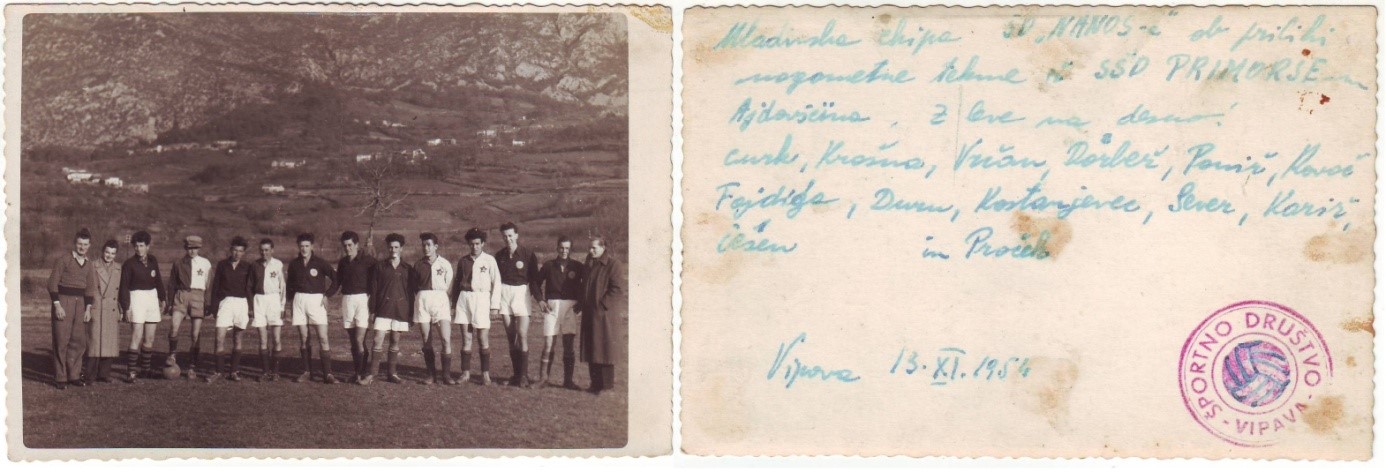 Mladinska ekipa ŠD „NANOS-a" ob priliki
nogometne tekme s SŠD PRIMORJE
Ajdovščina. Z leve na desno:
Curk, Krašna, Vučan, Dorbež, Poniž, Kovač
Fajdiga, Durn, Kostanjevec, Sever, Kariž,
Česen in Proček
Vipava 13.XI.1954
ŠPORTNO DRUŠTVO
- VIPAVA -